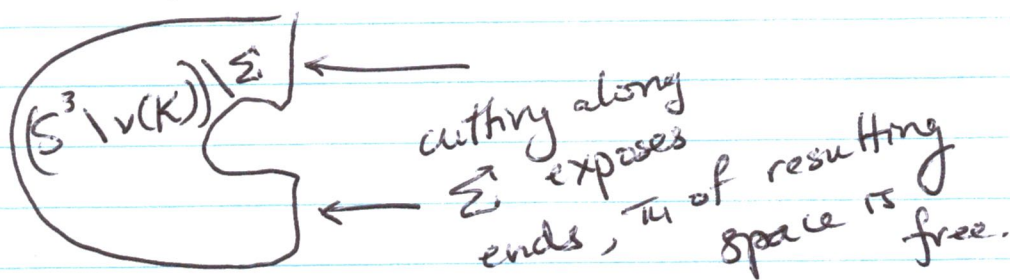 (S³\ν(K))\Σ
cutting along
Σ exposes
ends, π₁ of resulting
space is free.